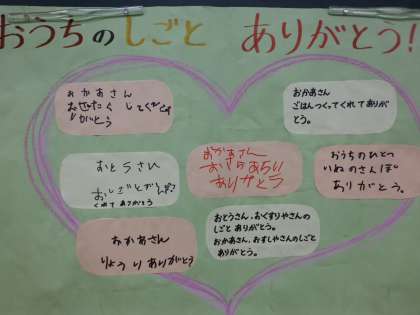 おうちのしごと ありがとう!
おかあさん
おせんたく してくれて
ありがとう
おかあさん
ごはんつくってくれてありが
とう。
おとうさん
おしごとがんばって
くれて ありがとう
おかあさん
おさらあらい
ありがとう
おうちのひとつ
いぬのさんぽ
ありがとう。
おとうさん、おくすりやさんの
しごと ありがとう。
おかあさん、おすしやさんのしごと
ありがとう。
おかあさん
りょうり ありがとう